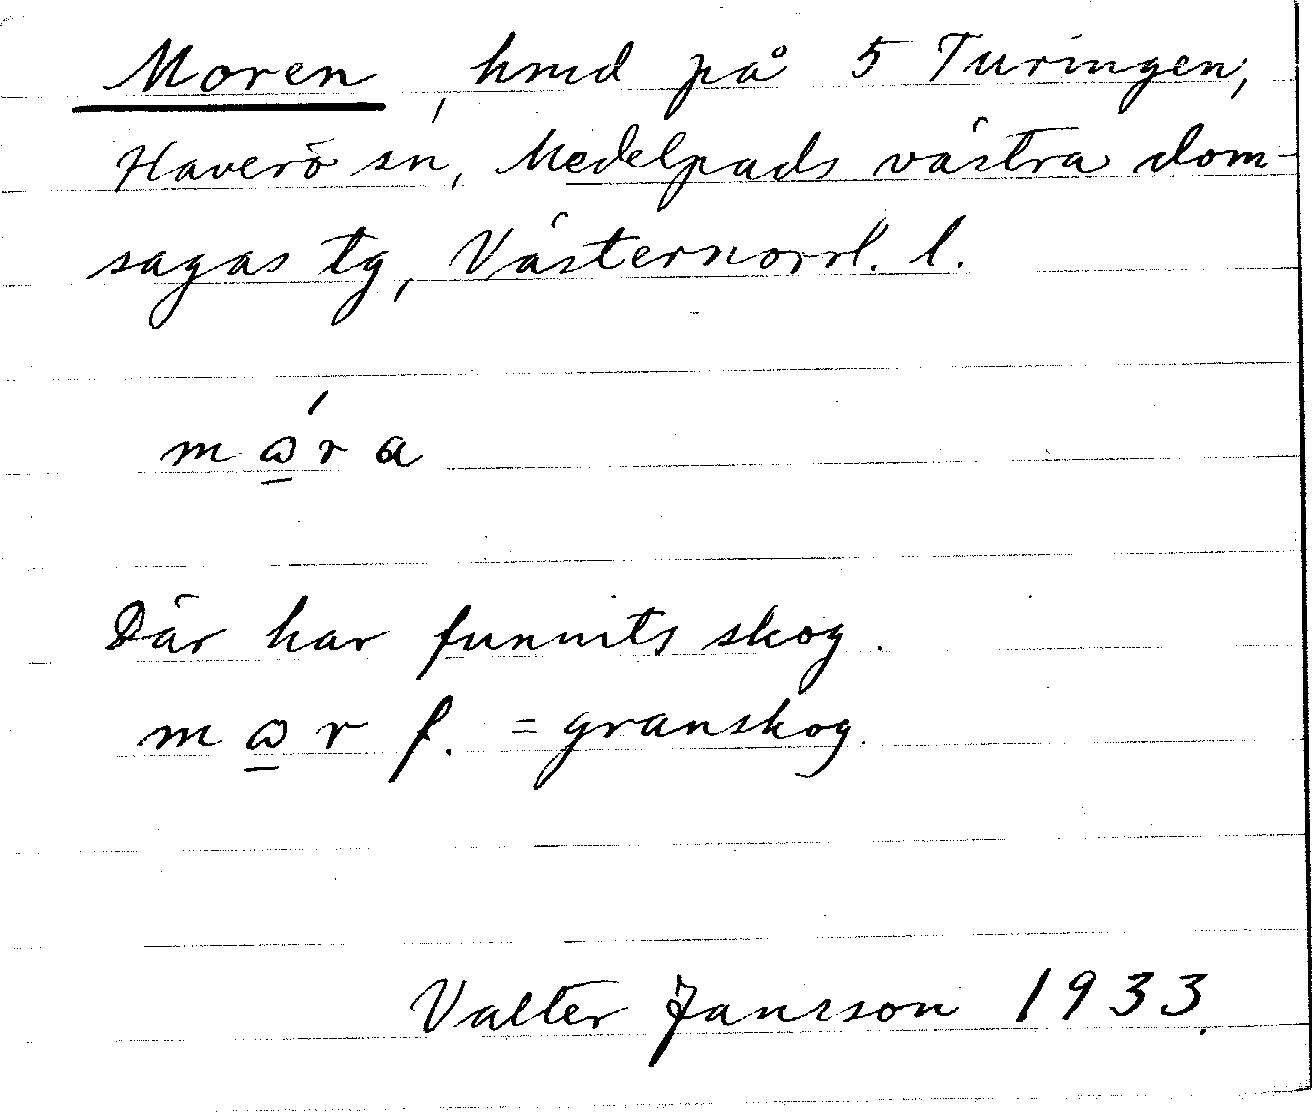 Moren, hmd på 5 Turingen,
Haverö sn, Medelpads västra dom-
sagas tg, Västernorrl. l.
mɷ̱́ra
Där har funnits skog.
mɷ̱r f. = granskog.
Valter Jansson 1933.